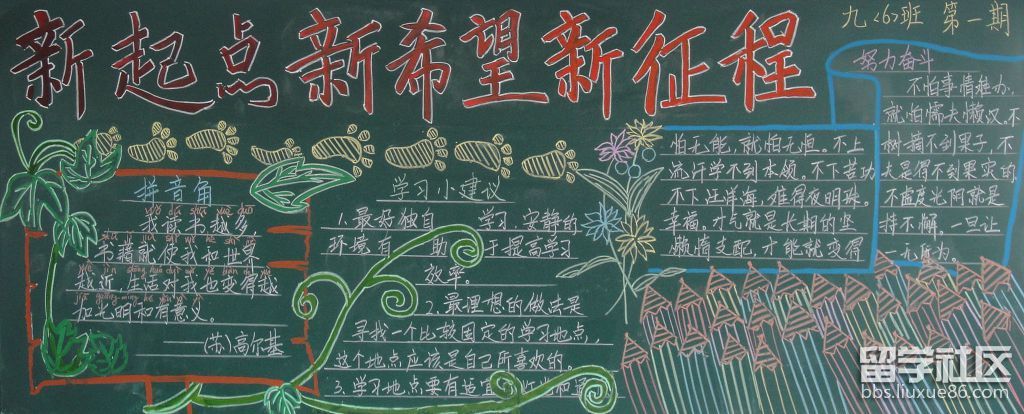 新起点新希望新征程
九<6>班 第一期
拼音角
我读书越多
书籍就使我和世界
越近,生活对我也变得越
加光明和有意义。
——(苏)高尔基
学习小建议
1.最好独自 学习 安静的
环境有 助 于提高学习
效率。
2.最理想的做法是
寻找一个比较固定的学习地点,
这个地点应该是自己所喜欢的。
3.学习地点要有适宜的
努力奋斗
不怕事情难办,
怕无能,就怕无恒。不上 就怕懦夫懒汉。不
流汗学不到本领。不下苦功 树摘不到果子,不
不下汪洋海,难得夜明珠。 夫是得不到果实的。
幸福。才气就是长期的坚 不虚度光阴就是
懒惰支配,才能就变得 持不懈。一旦让
一无所为。
留学社区
bbs.liuxue86.com